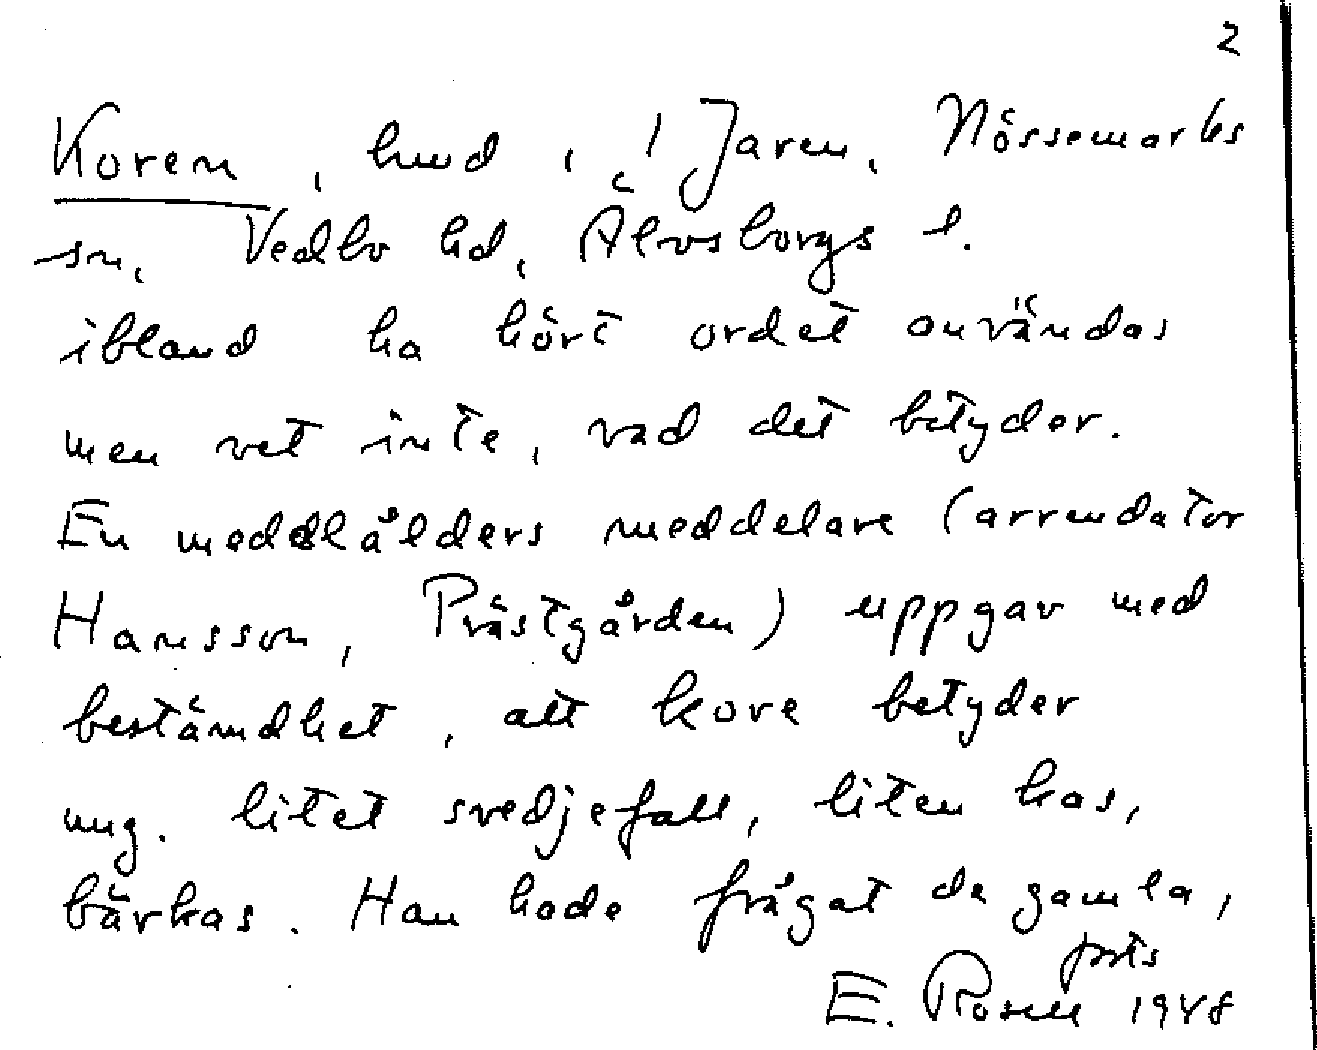 2
Koren, hmd i l Jaren, Nössemarks
sn, Vedbo hd, Älvsborgs l.
ibland ha hört ordet användas
men vet inte, vad det betyder.
En meddelålders meddelare (arrendator
Hansson, Prästgården) uppgav med
bestämdhet, att kore betyder
ung. litet svedjefall, liten kas,
bärkas. Han hade frågat de gamla,
forts
E. Rosell 1948